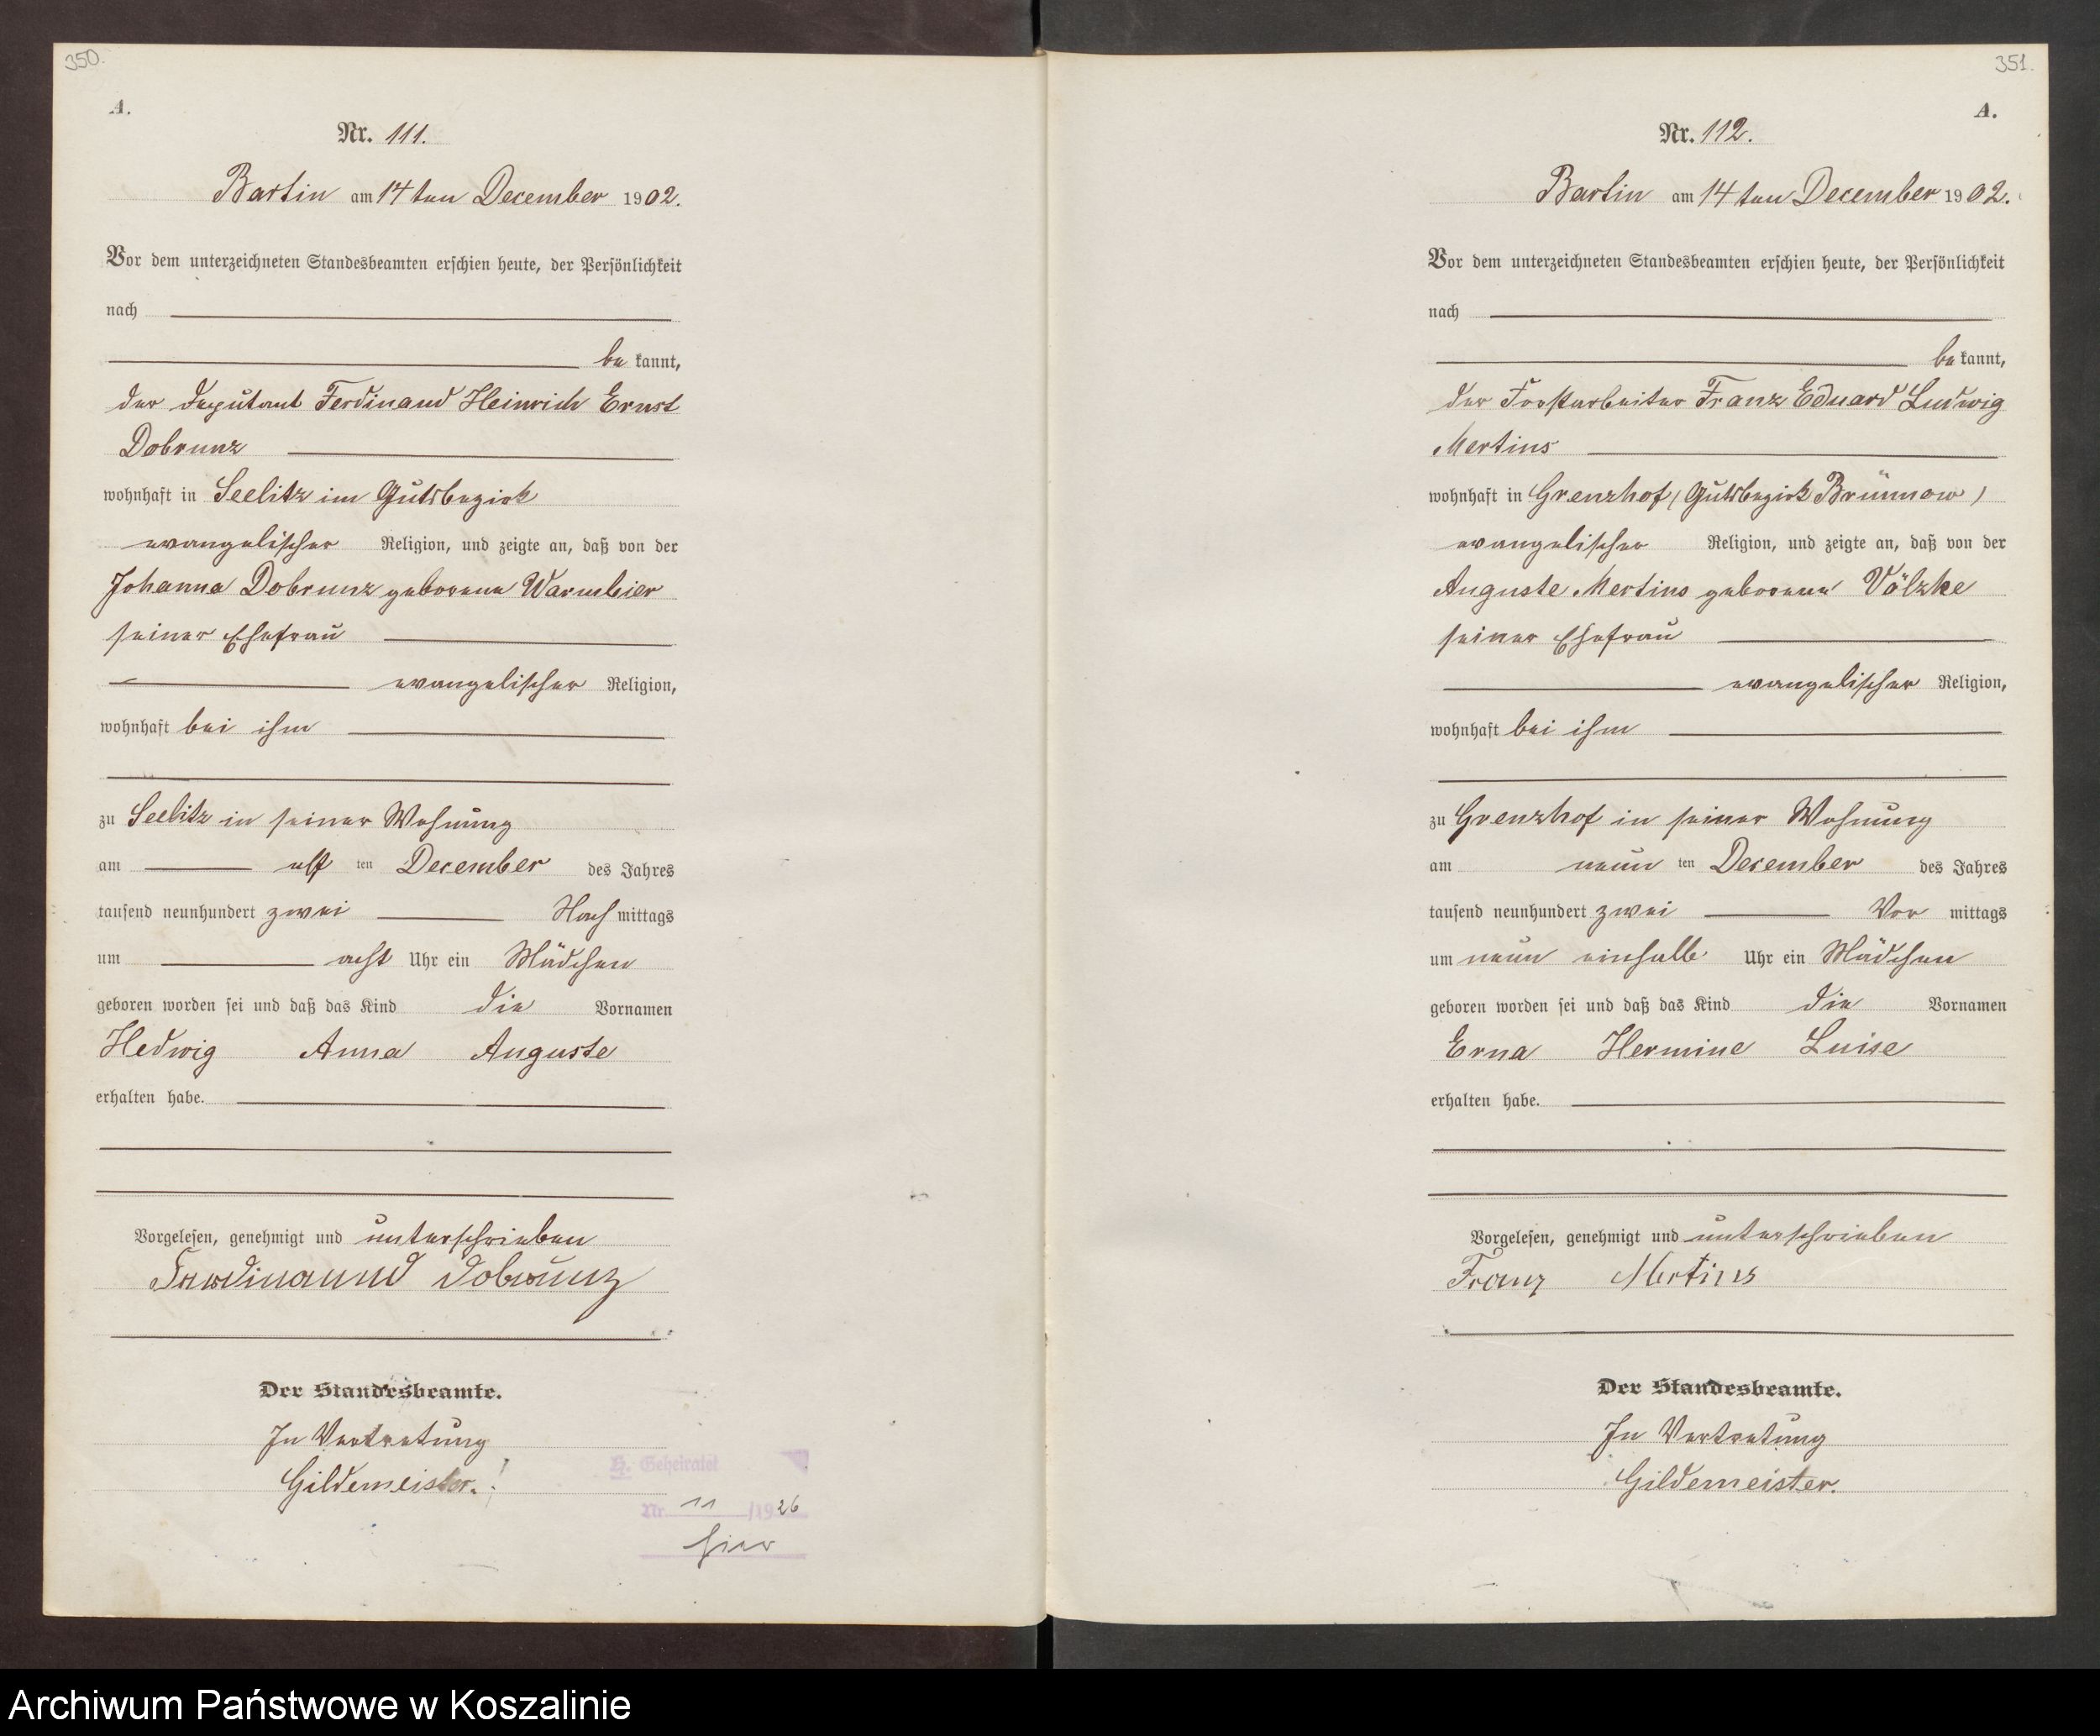 350.
A.
Nr. 111.
Bartin am 14 ten December 1902.
Vor dem unterzeichneten Standesbeamten erschien heute, der Persönlichkeit
nach
be kannt,
der Deputant Ferdinand Heinrich Ernst
Dobrunz
wohnhaft in Seelitz im Gutsbezirk
evangelischer Religion, und zeigte an, daß von der
Johanna Dobrunz geborene Warmbier
seiner Ehefrau
evangelischer Religion,
wohnhaft bei ihm
zu Seelitz in seiner Wohnung
am elf ten December des Jahres
tausend neunhundert zwei Nach mittags
um acht Uhr ein Mädchen
geboren worden sei und daß das Kind die Vornamen
Hedwig Anna Auguste
erhalten habe.
Vorgelesen, genehmigt und unterschrieben
Ferdinannd Dobrunz
Der Standesbeamte.
In Vertretung
Gildemeister.
Geheiratet
Nr. 11 /1926
hier
351.
A.
Nr. 112.
Bartin am 14 ten December 1902.
Vor dem unterzeichneten Standesbeamten erschien heute, der Persönlichkeit
nach
be kannt,
der Forstarbeiter Franz Eduard Ludwig
Mertins
wohnhaft in Grenzhof (Gutsbezirk Brünnow)
evangelischer Religion, und zeigte an, daß von der
Auguste Mertins geborene Völzke
seiner Ehefrau
evangelischer Religion,
wohnhaft bei ihm
zu Grenzhof in seiner Wohnung
am neun ten December des Jahres
tausend neunhundert zwei Vor mittags
um neun einhalb Uhr ein Mädchen
geboren worden sei und daß das Kind die Vornamen
Erna Hermine Luise
erhalten habe.
Vorgelesen, genehmigt und unterschrieben
Franz Mertins
Der Standesbeamte.
In Vertretung
Gildemeister.
Archiwum Państwowe w Koszalinie